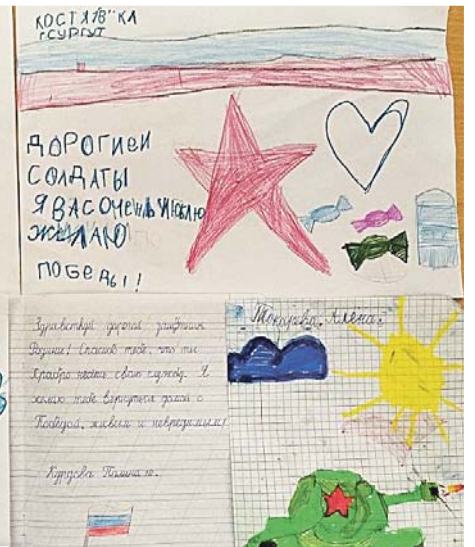 КОСТЯ 1В"КЛ
г.СУРГУТ
ДОРОГИЕИ
СОЛДАТЫ
Я ВАС ОЧЕНЬ ЛЮБЛЮ
ЖЕЛАЮ
ПОБЕДЫ!
Здравствуй дорогой защитник
Родины! Спасибо тебе, что ты
храбро несёшь свою службу. Я
желаю тебе вернуться домой с
Победой, живым и невредимым!
Курдова Полина
Токарева Алёна.